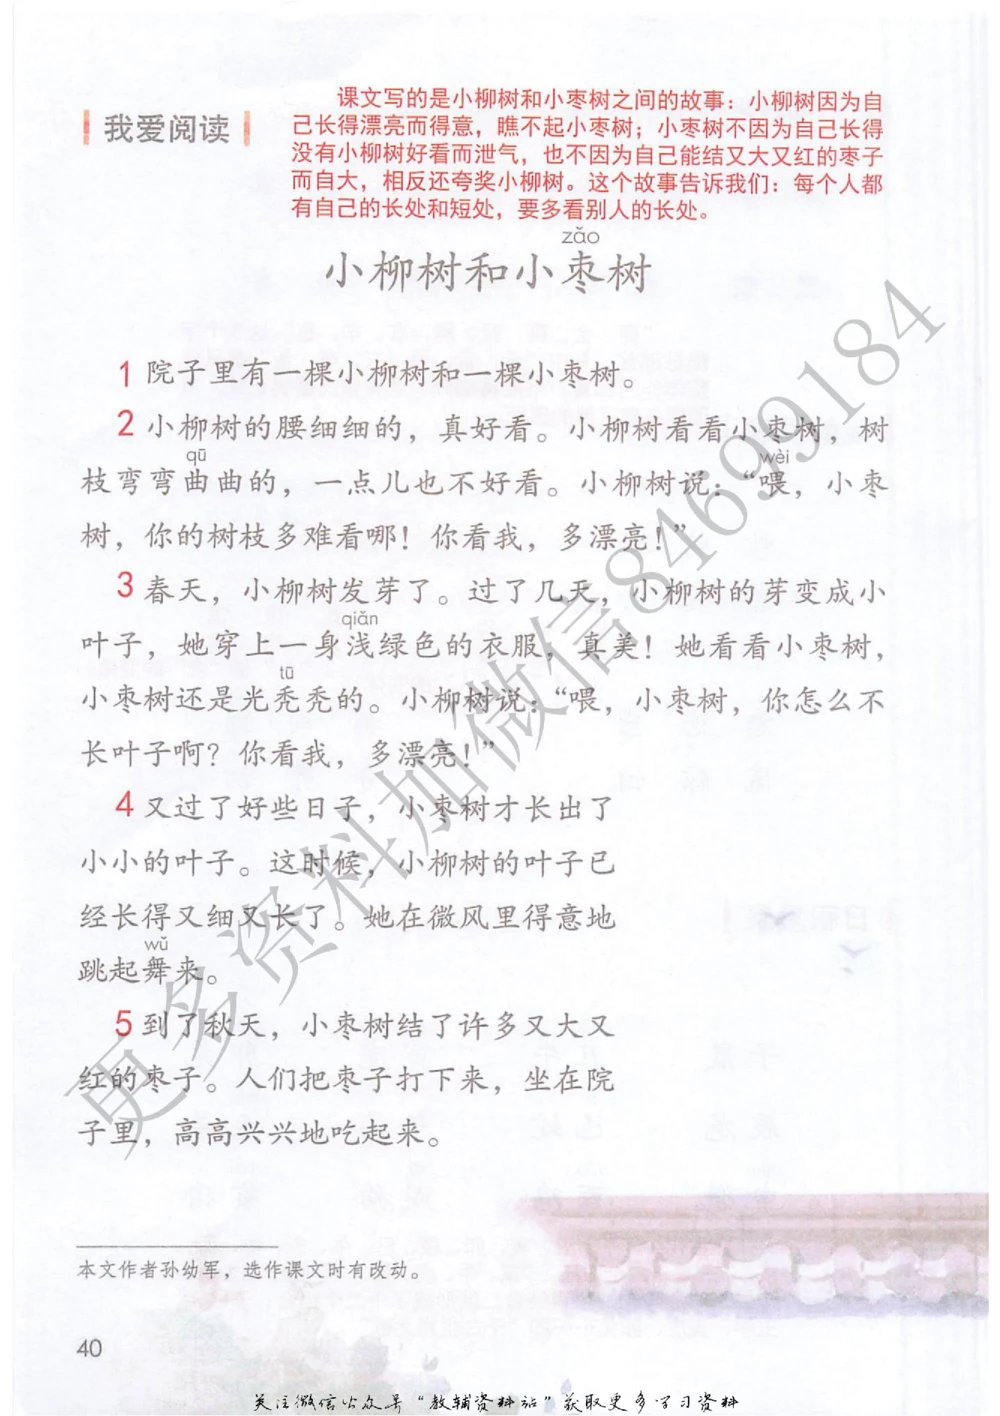 我爱阅读
课文写的是小柳树和小枣树之间的故事：小柳树因为自
己长得漂亮而得意，瞧不起小枣树；小枣树不因为自己长得
没有小柳树好看而泄气，也不因为自己能结又大又红的枣子
而自大，相反还夸奖小柳树。这个故事告诉我们：每个人都
有自己的长处和短处，要多看别人的长处。
zǎo
小柳树和小枣树
1 院子里有一棵小柳树和一棵小枣树。
2 小柳树的腰细细的，真好看。小柳树看看小枣树，树
qū wèi
枝弯弯曲曲的，一点儿也不好看。小柳树说：“喂，小枣
树，你的树枝多难看哪！你看我，多漂亮！”
3 春天，小柳树发芽了。过了几天，小柳树的芽变成小
qiǎn
叶子，她穿上一身浅绿色的衣服，真美！她看看小枣树，
tū
小枣树还是光秃秃的。小柳树说：“喂，小枣树，你怎么不
长叶子啊？你看我，多漂亮！”
4 又过了好些日子，小枣树才长出了
小小的叶子。这时候，小柳树的叶子已
经长得又细又长了。她在微风里得意地
wǔ
跳起舞来。
5 到了秋天，小枣树结了许多又大又
红的枣子。人们把枣子打下来，坐在院
子里，高高兴兴地吃起来。
本文作者孙幼军，选作课文时有改动。
40
关注微信公众号“教辅资料站”获取更多学习资料
更多资料加微信84699184